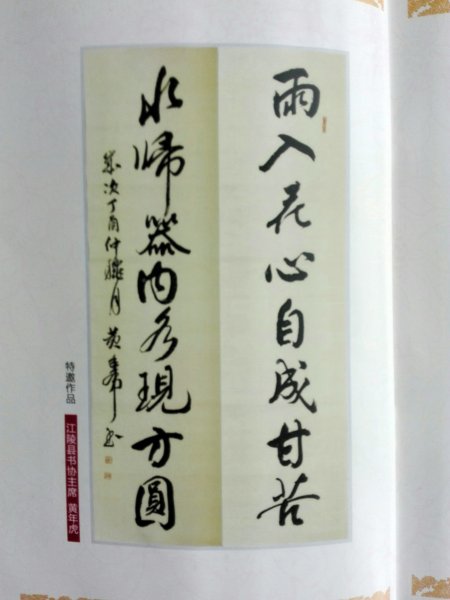 雨入花心自成甘苦
水歸器内各現方圓
歲次丁酉仲穐月
特邀作品
江陵县书协主席 黄年虎